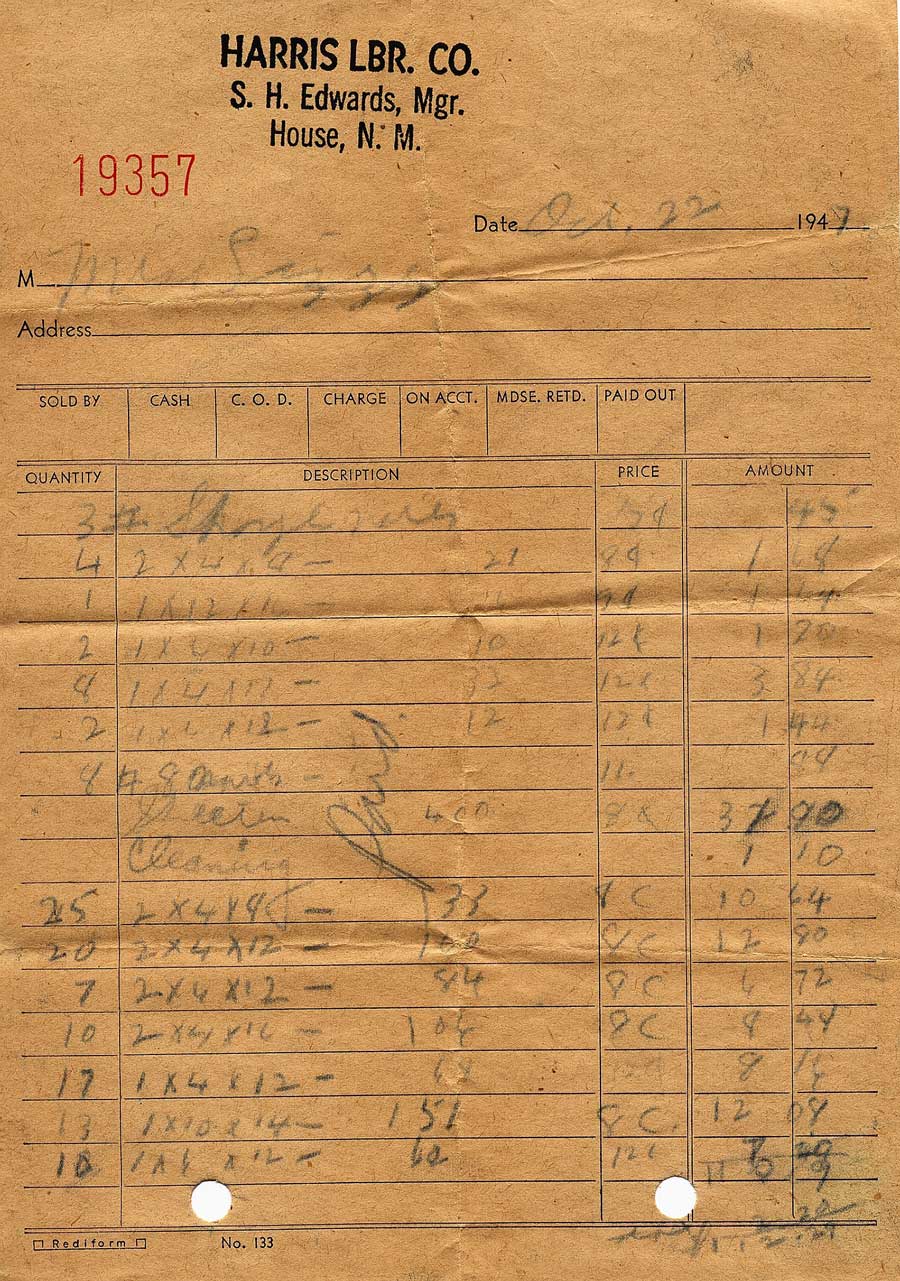 HARRIS LBR. CO.
S. H. Edwards, Mgr.
House, N. M.
19357
Date Oct. 22 1947
M
Address
SOLD BY CASH C. O. D. CHARGE ON ACCT. MDSE. RETD. PAID OUT
QUANTITY DESCRIPTION PRICE AMOUNT
3 45
4 2 x 4 x 8 — 21 8¢ 1 68
1 1 x 12 x 1
2 1 x 6 x 10 — 10 12¢ 1 20
8 1 x 4 x 12 — 32 12¢ 3 84
2 1 x 6 x 12 — 12 12¢ 1 44
8 11
Screen 400 8¢ 90
Cleaning 1 10
Paid.
25 2 x 4 x 8 — 133 8C 10 64
20 2 x 4 x 12 — 160 8C 12 80
7 2 x 6 x 12 — 84 8C 6 72
10 2 x 4 x 16 — 106 8C 8 48
17 1 x 4 x 12 — 68 8 16
13 1 x 10 x 14 — 151 8C. 12 08
10 1 x 6 x 12 — 60 12¢
Rediform No. 133